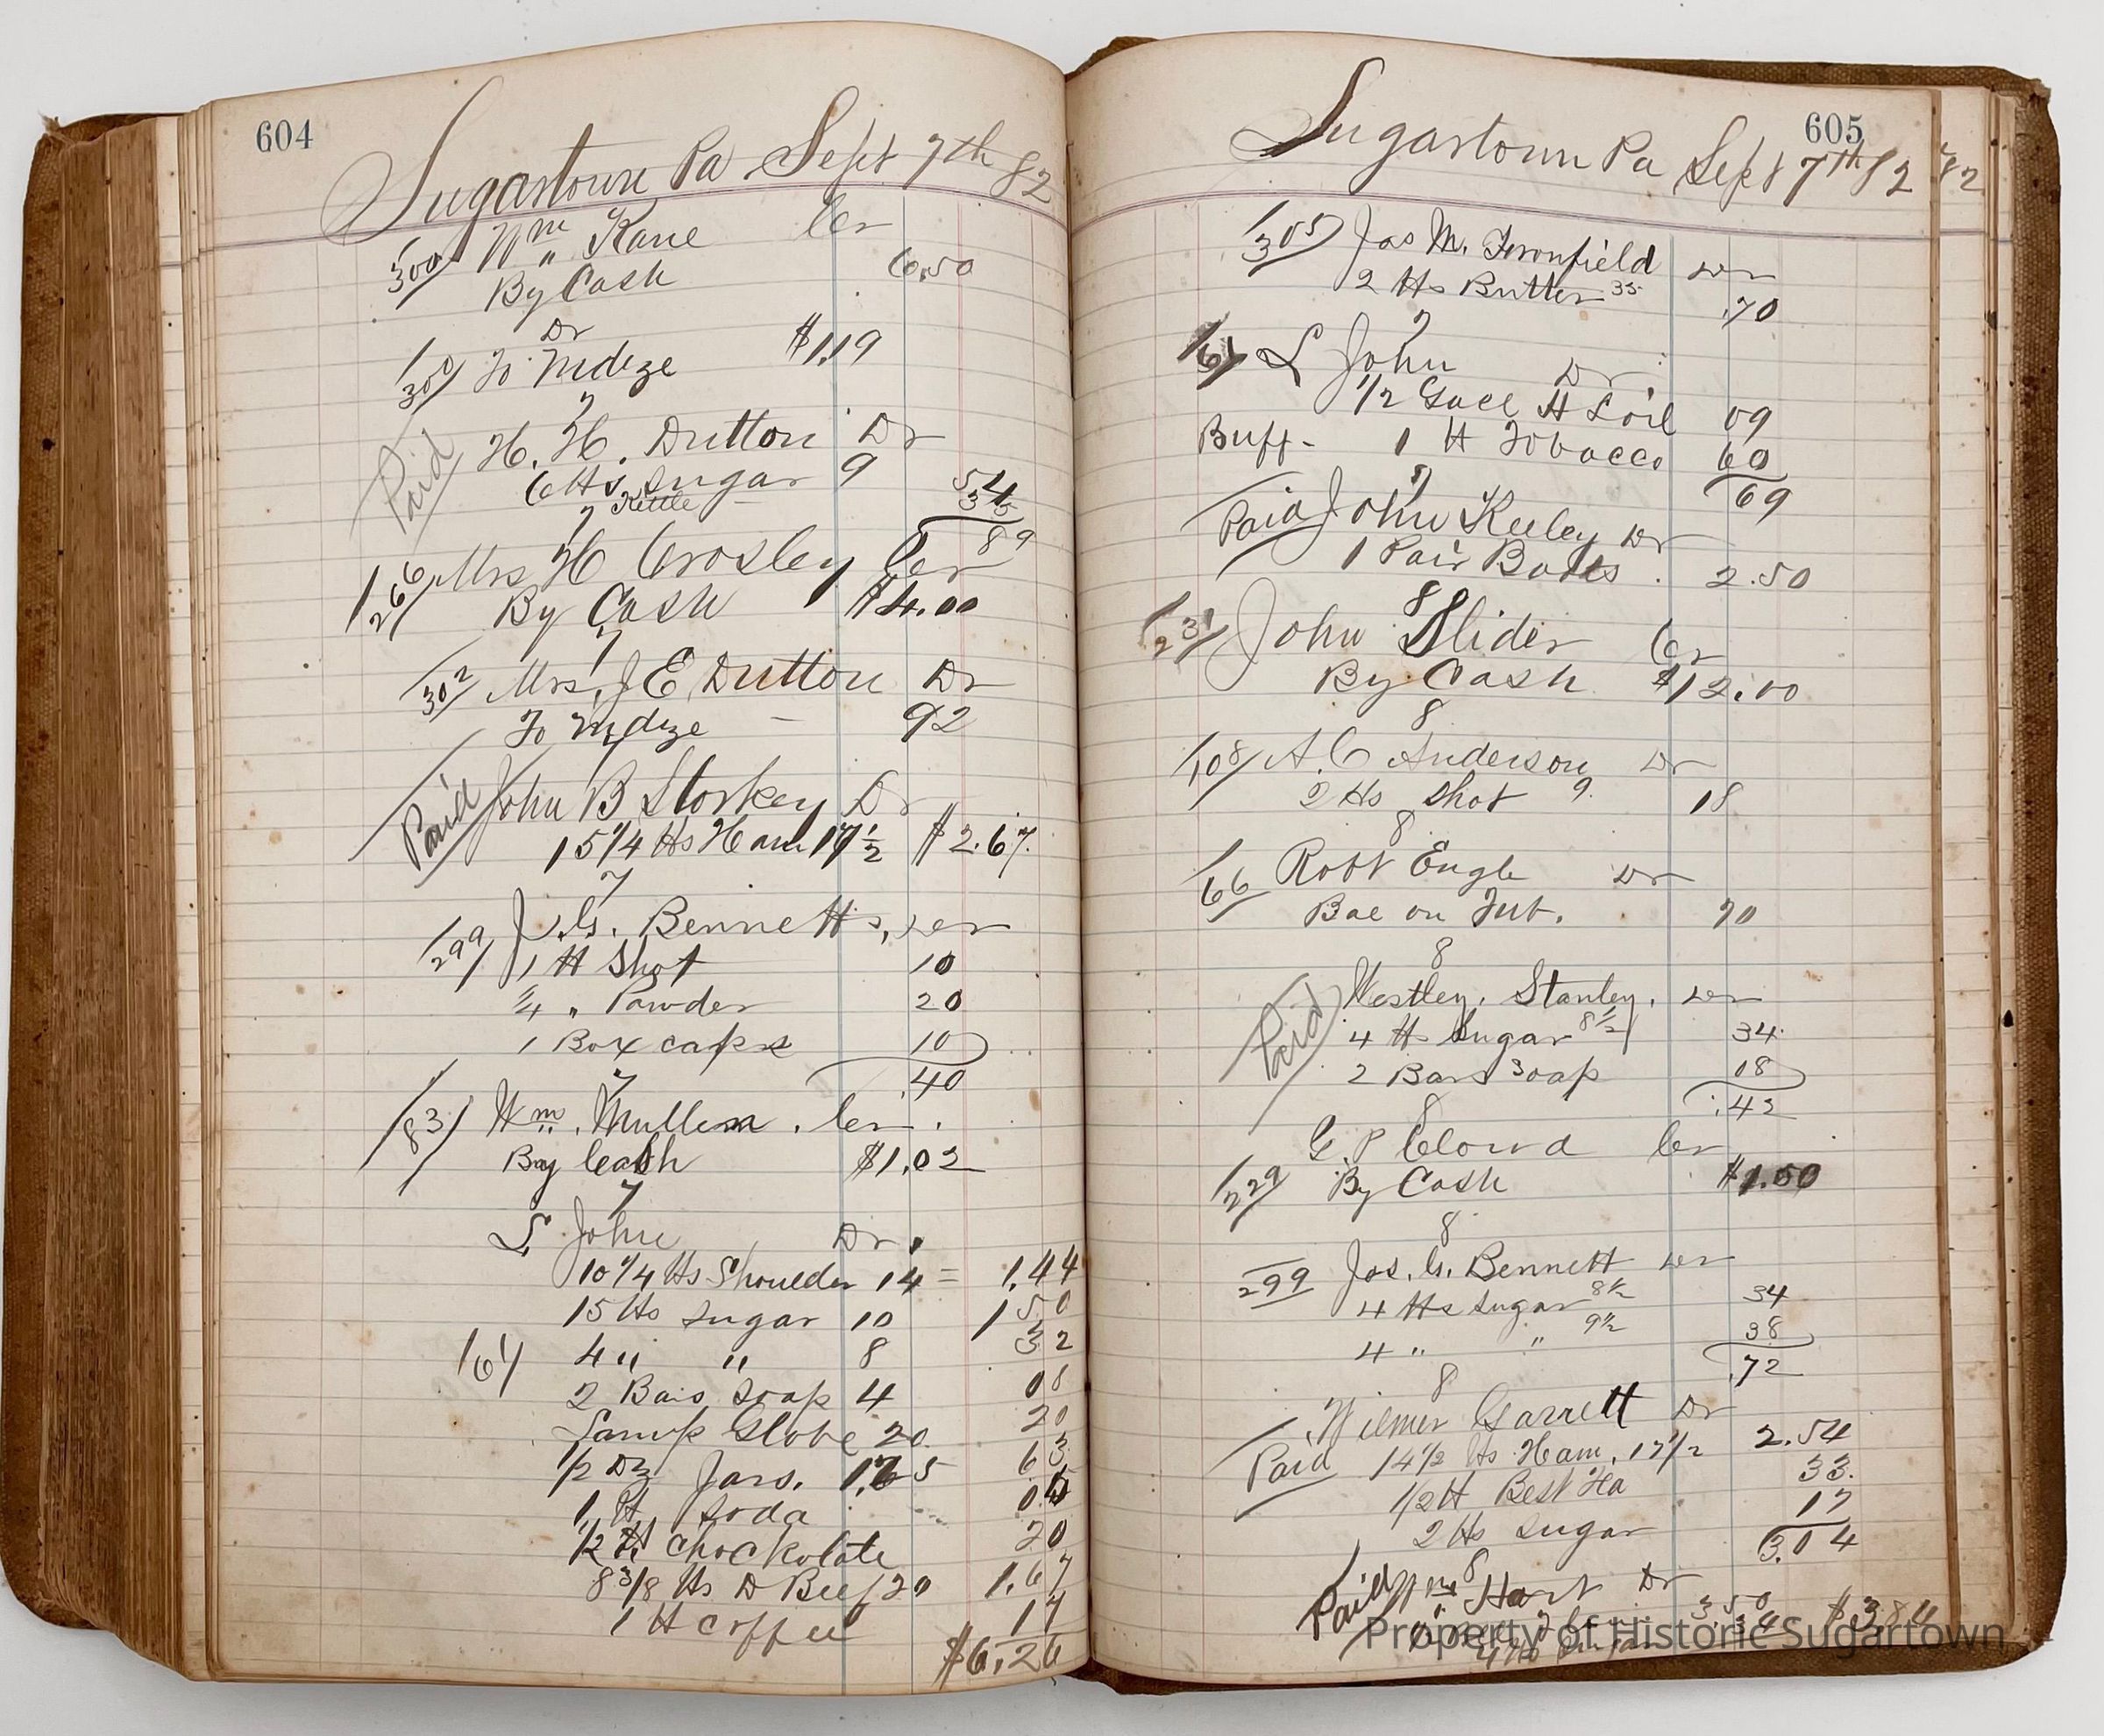 604
Sugartown Pa Sept 7th 82
300 Wm Kane Cr
By Cash 6.50
Dr
300 To Mdze $1.19
7
Paid H. H. Dutton Dr
6 lbs Sugar 9 54
Kettle 35
7 89
266 Mrs H Crosley Cr
By Cash $4.00
7
302 Mrs. J E Dutton Dr
To Mdze 92
7
Paid John B Storkey Dr
15 1/4 lbs Ham 17 1/2 $2.67
7
299 J. G. Bennett Dr
1 lb Shot 10
1/4 " Powder 20
1 Box caps 10
7 .40
83 Wm. Mullen. Cr.
By Cash $1.02
7
L John Dr.
10 1/4 lbs Shoulder 14 = 1.44
15 lbs Sugar 10 1 50
161 4 " " 8 32
2 Bars Soap 4 08
Lamp Globe 20 20
1/2 Dz Jars. 1.25 63
1 lb Soda 05
1/2 lb Chockolate 20
8 3/8 lbs D Beef 20 1.67
1 lb Coffee 17
$6.26
605
Sugartown Pa Sept 7th 82
82
305 Jas M. Fronfield Dr
2 lbs Butter 35 .70
7
161 L John Dr
1/2 Gall H L oil 09
Buff - 1 lb Tobacco 60
7 69
Paid John Keeley Dr
1 Pair Boots 2.50
8
231 John Slider Cr
By Cash $12.00
8
108 A. C Anderson Dr
2 lbs Shot 9. 18
8
66 Robt Engle Dr
Bal on Tub. 70
8
Paid Westley. Stanley. Dr
4 lb Sugar 8 1/2 34
2 Bars Soap 08
8 .42
G. P Cloud Cr
229 By Cash $1.50
8
299 Jos. G. Bennett Dr
4 lbs Sugar 8 1/2 34
4 " " 9 1/2 38
8 .72
Wilmer Garrett Dr
Paid 14 1/2 lbs Ham. 17 1/2 2.54
1/2 lb Best 33.
2 lbs Sugar 17
3.04
8
Paid Wm Hart Dr
3 50
4 lbs Sugar 34 $3.84
Property of Historic Sugartown